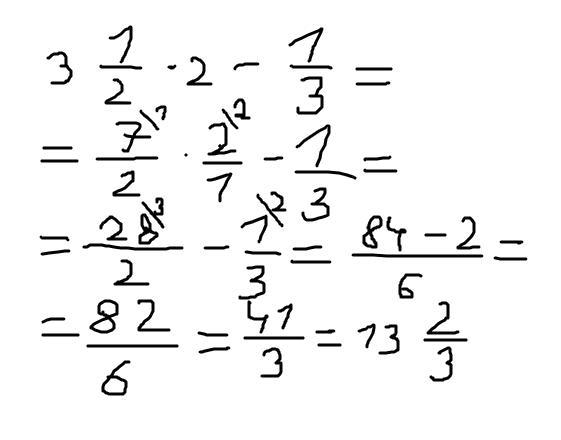 3 1/2 · 2 - 1/3 =
= 7\1/2 · 2\2/1 - 1/3 =
= 28\3/2 - 1\2/3 = 84 - 2/6 =
= 82/6 = 41/3 = 13 2/3